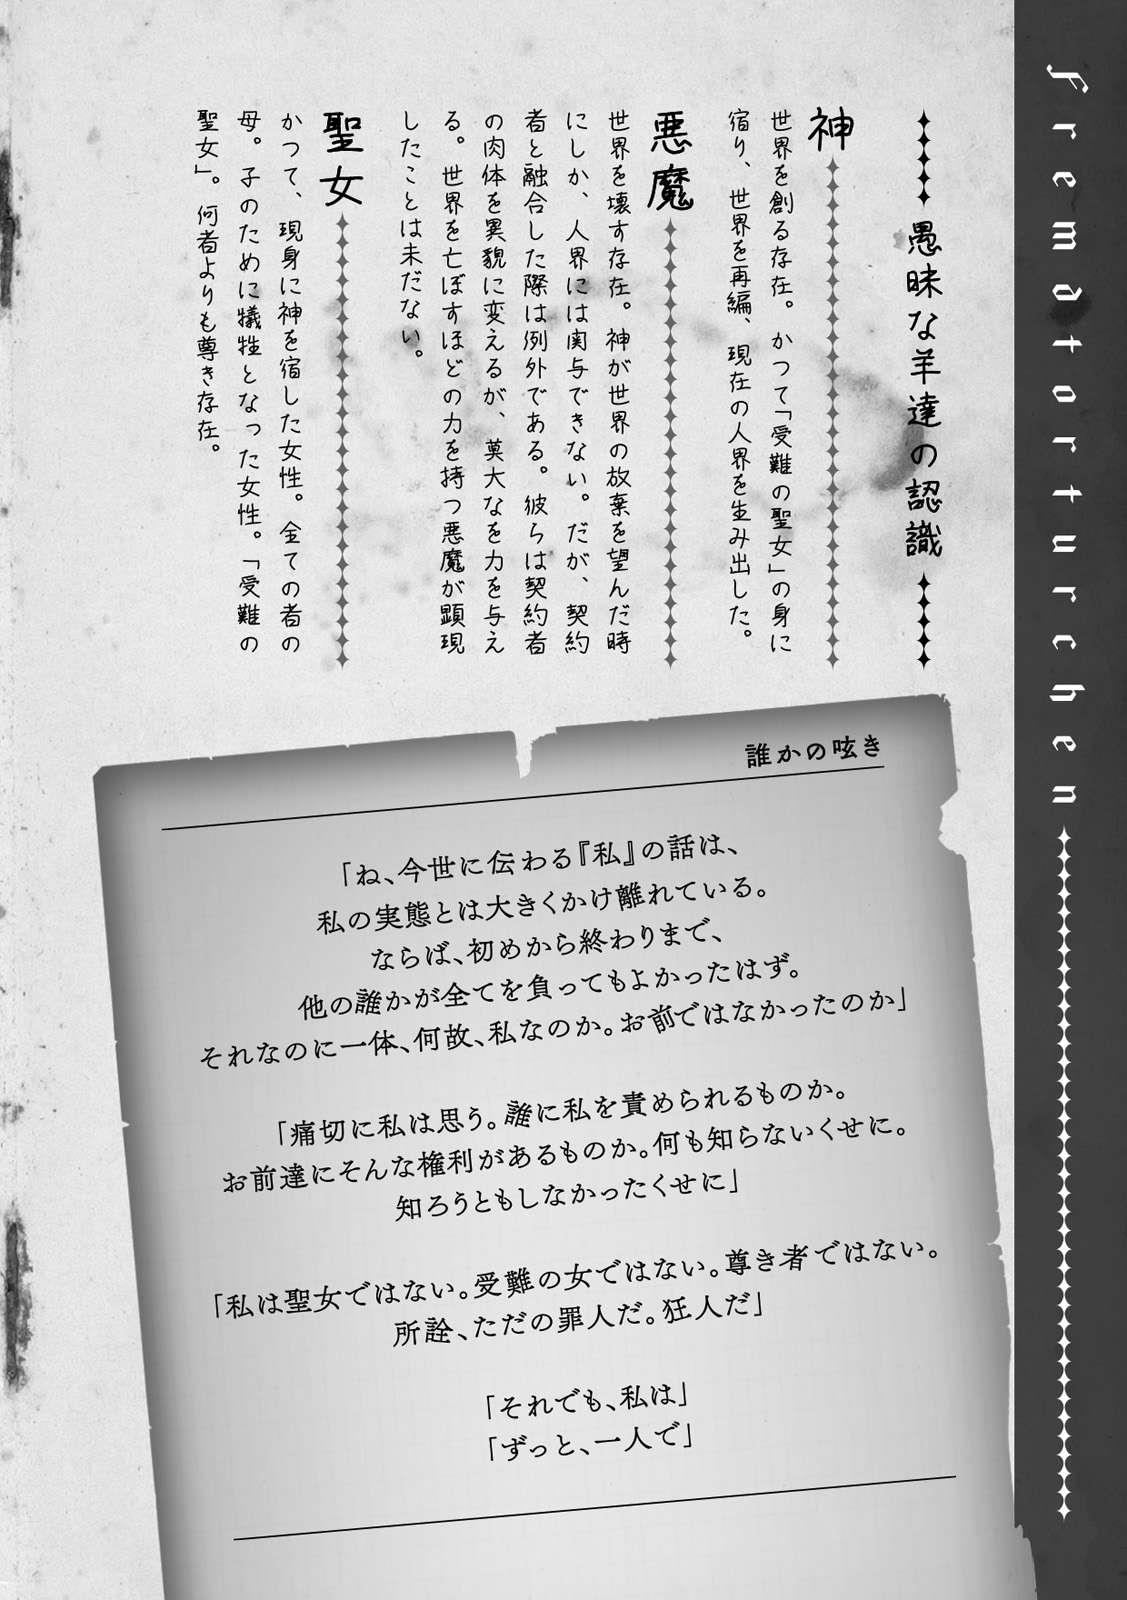 frematorturchen
愚昧な羊達の認識
神
世界を創る存在。かつて「受難の聖女」の身に
宿り、世界を再編、現在の人界を生み出した。
悪魔
世界を壊す存在。神が世界の放棄を望んだ時
にしか、人界には関与できない。だが、契約
者と融合した際は例外である。彼らは契約者
の肉体を異貌に変えるが、莫大なを力を与え
る。世界を亡ぼすほどの力を持つ悪魔が顕現
したことは未だない。
聖女
かつて、現身に神を宿した女性。全ての者の
母。子のために犠牲となった女性。「受難の
聖女」。何者よりも尊き存在。
誰かの呟き
「ね、今世に伝わる『私』の話は、
私の実態とは大きくかけ離れている。
ならば、初めから終わりまで、
他の誰かが全てを負ってもよかったはず。
それなのに一体、何故、私なのか。お前ではなかったのか」
「痛切に私は思う。誰に私を責められるものか。
お前達にそんな権利があるものか。何も知らないくせに。
知ろうともしなかったくせに」
「私は聖女ではない。受難の女ではない。尊き者ではない。
所詮、ただの罪人だ。狂人だ」
「それでも、私は」
「ずっと、一人で」